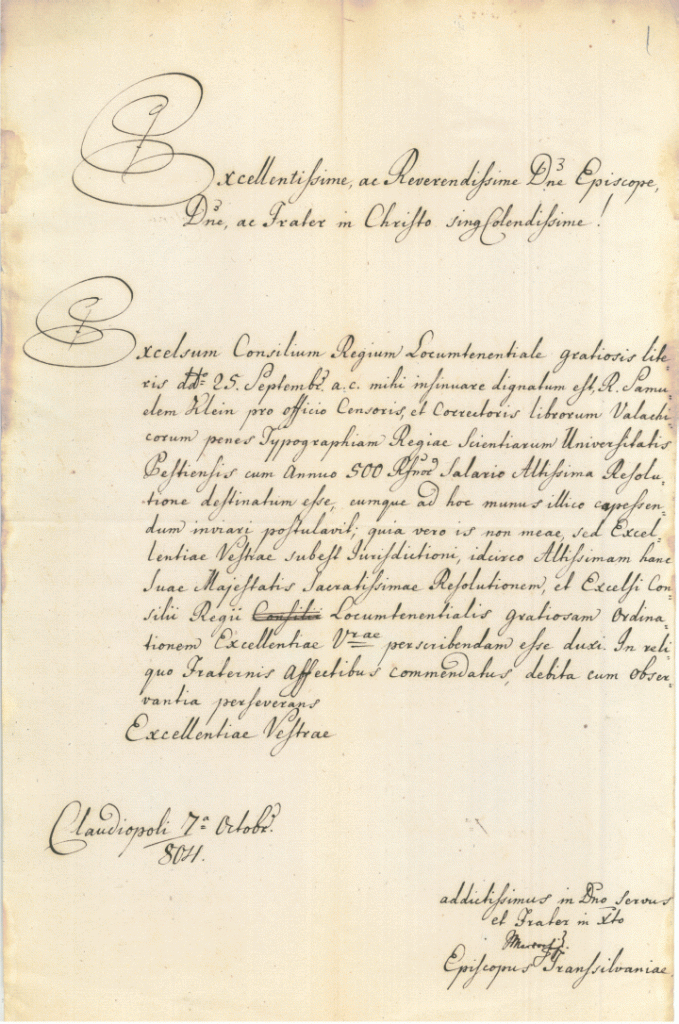 Excellentissime, ac Reverendissime Dne Episcope,
Dne, ac Frater in Christo sing Colendissime!
Excelsum Consilium Regium Locumtenentiale gratiosis lite-
ris ddto 25. Septembr. a.c. mihi insinuare dignatum est, R. Samu-
elem Klein pro officio Censoris, et Correctoris librorum Valachi-
corum penes Typographiam Regiae Scientiarum Universitatis
Pestiensis cum Annuo 500 Rfnor Salario Altissima Resolu-
tione destinatum esse, eumque ad hoc munus illico capessen-
dum inviari postulavit; quia vero is non meae, sed Excel-
lentiae Vestrae subest Jurisdictioni, idcirco Altissimam hanc
Suae Majestatis Sacratissimae Resolutionem, et Excelsi Con-
silii Regii Consilii Locumtenentialis gratiosam Ordina-
tionem Excellentiae Vrae perscribendam esse duxi. In reli-
quo Fraternis Affectibus commendatus, debita cum obser-
vantia perseverans
Excellentiae Vestrae
Claudiopoli 7a Octobr.
804.
addictissimus in Dno servus
et Frater in Xto
Episcopus Transsilvaniae